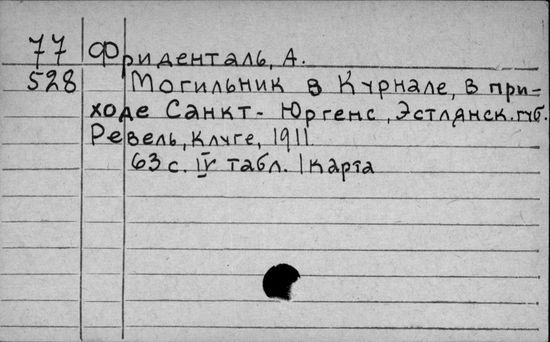 77 Фриденталь, А.
528 Могильник в Курнале, в при=
ходе Санкт-Юргенс, Эстлянск. губ.
Ревель, Клуге, 1911
63 с. IV табл. 1 карта